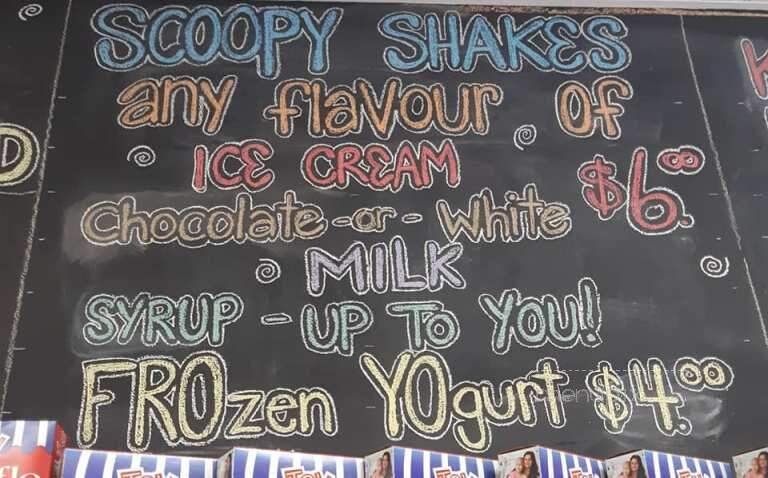 SCOOPY SHAKES
any flavour of
ICE CREAM $6.00
Chocolate - or - White
MILK
SYRUP - UP TO YOU!
FROzen YOgurt $4.00